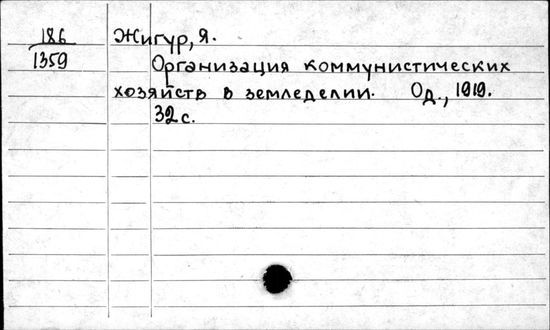 186 Жигур, Я.
1359 Организация коммунистических
хозяйств в земледелии. Од., 1919.
32 с.